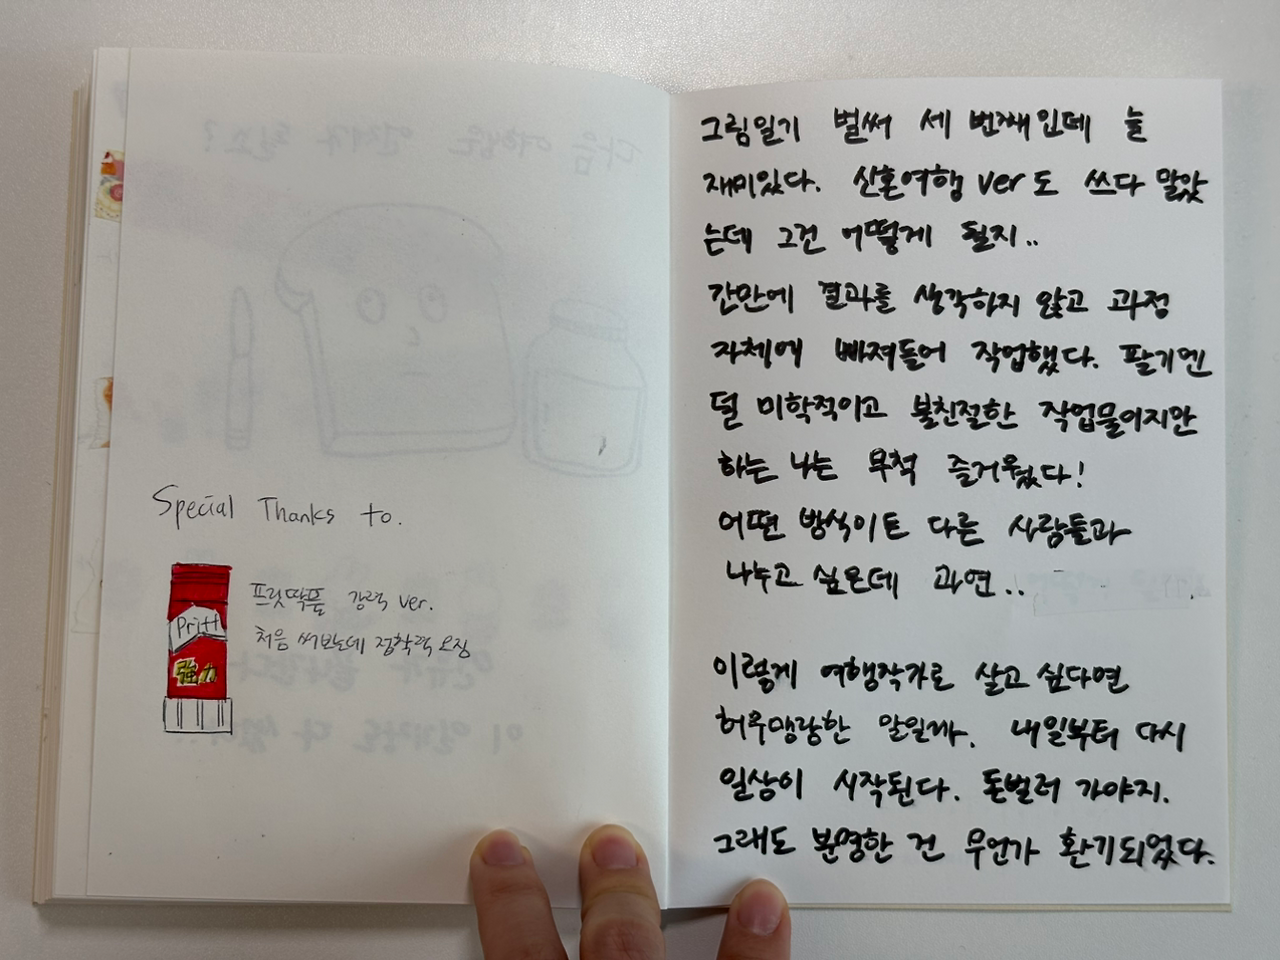 Special Thanks to.
프릿딱풀 강력 ver.
처음 써보는데 정착력 오짐
Pritt
強力
그림일기 벌써 세 번째인데 늘
재미있다. 신혼여행 ver도 쓰다 말았
는데 그건 어떻게 될지..
간만에 결과를 생각하지 않고 과정
자체에 빠져들어 작업했다. 팔기엔
덜 미학적이고 불친절한 작업물이지만
하는 나는 무척 즐거웠다!
어떤 방식이든 다른 사람들과
나누고 싶은데 과연..
이렇게 여행작가로 살고 싶다면
허무맹랑한 말일까. 내일부터 다시
일상이 시작된다. 돈벌러 가야지.
그래도 분명한 건 무언가 환기되었다.